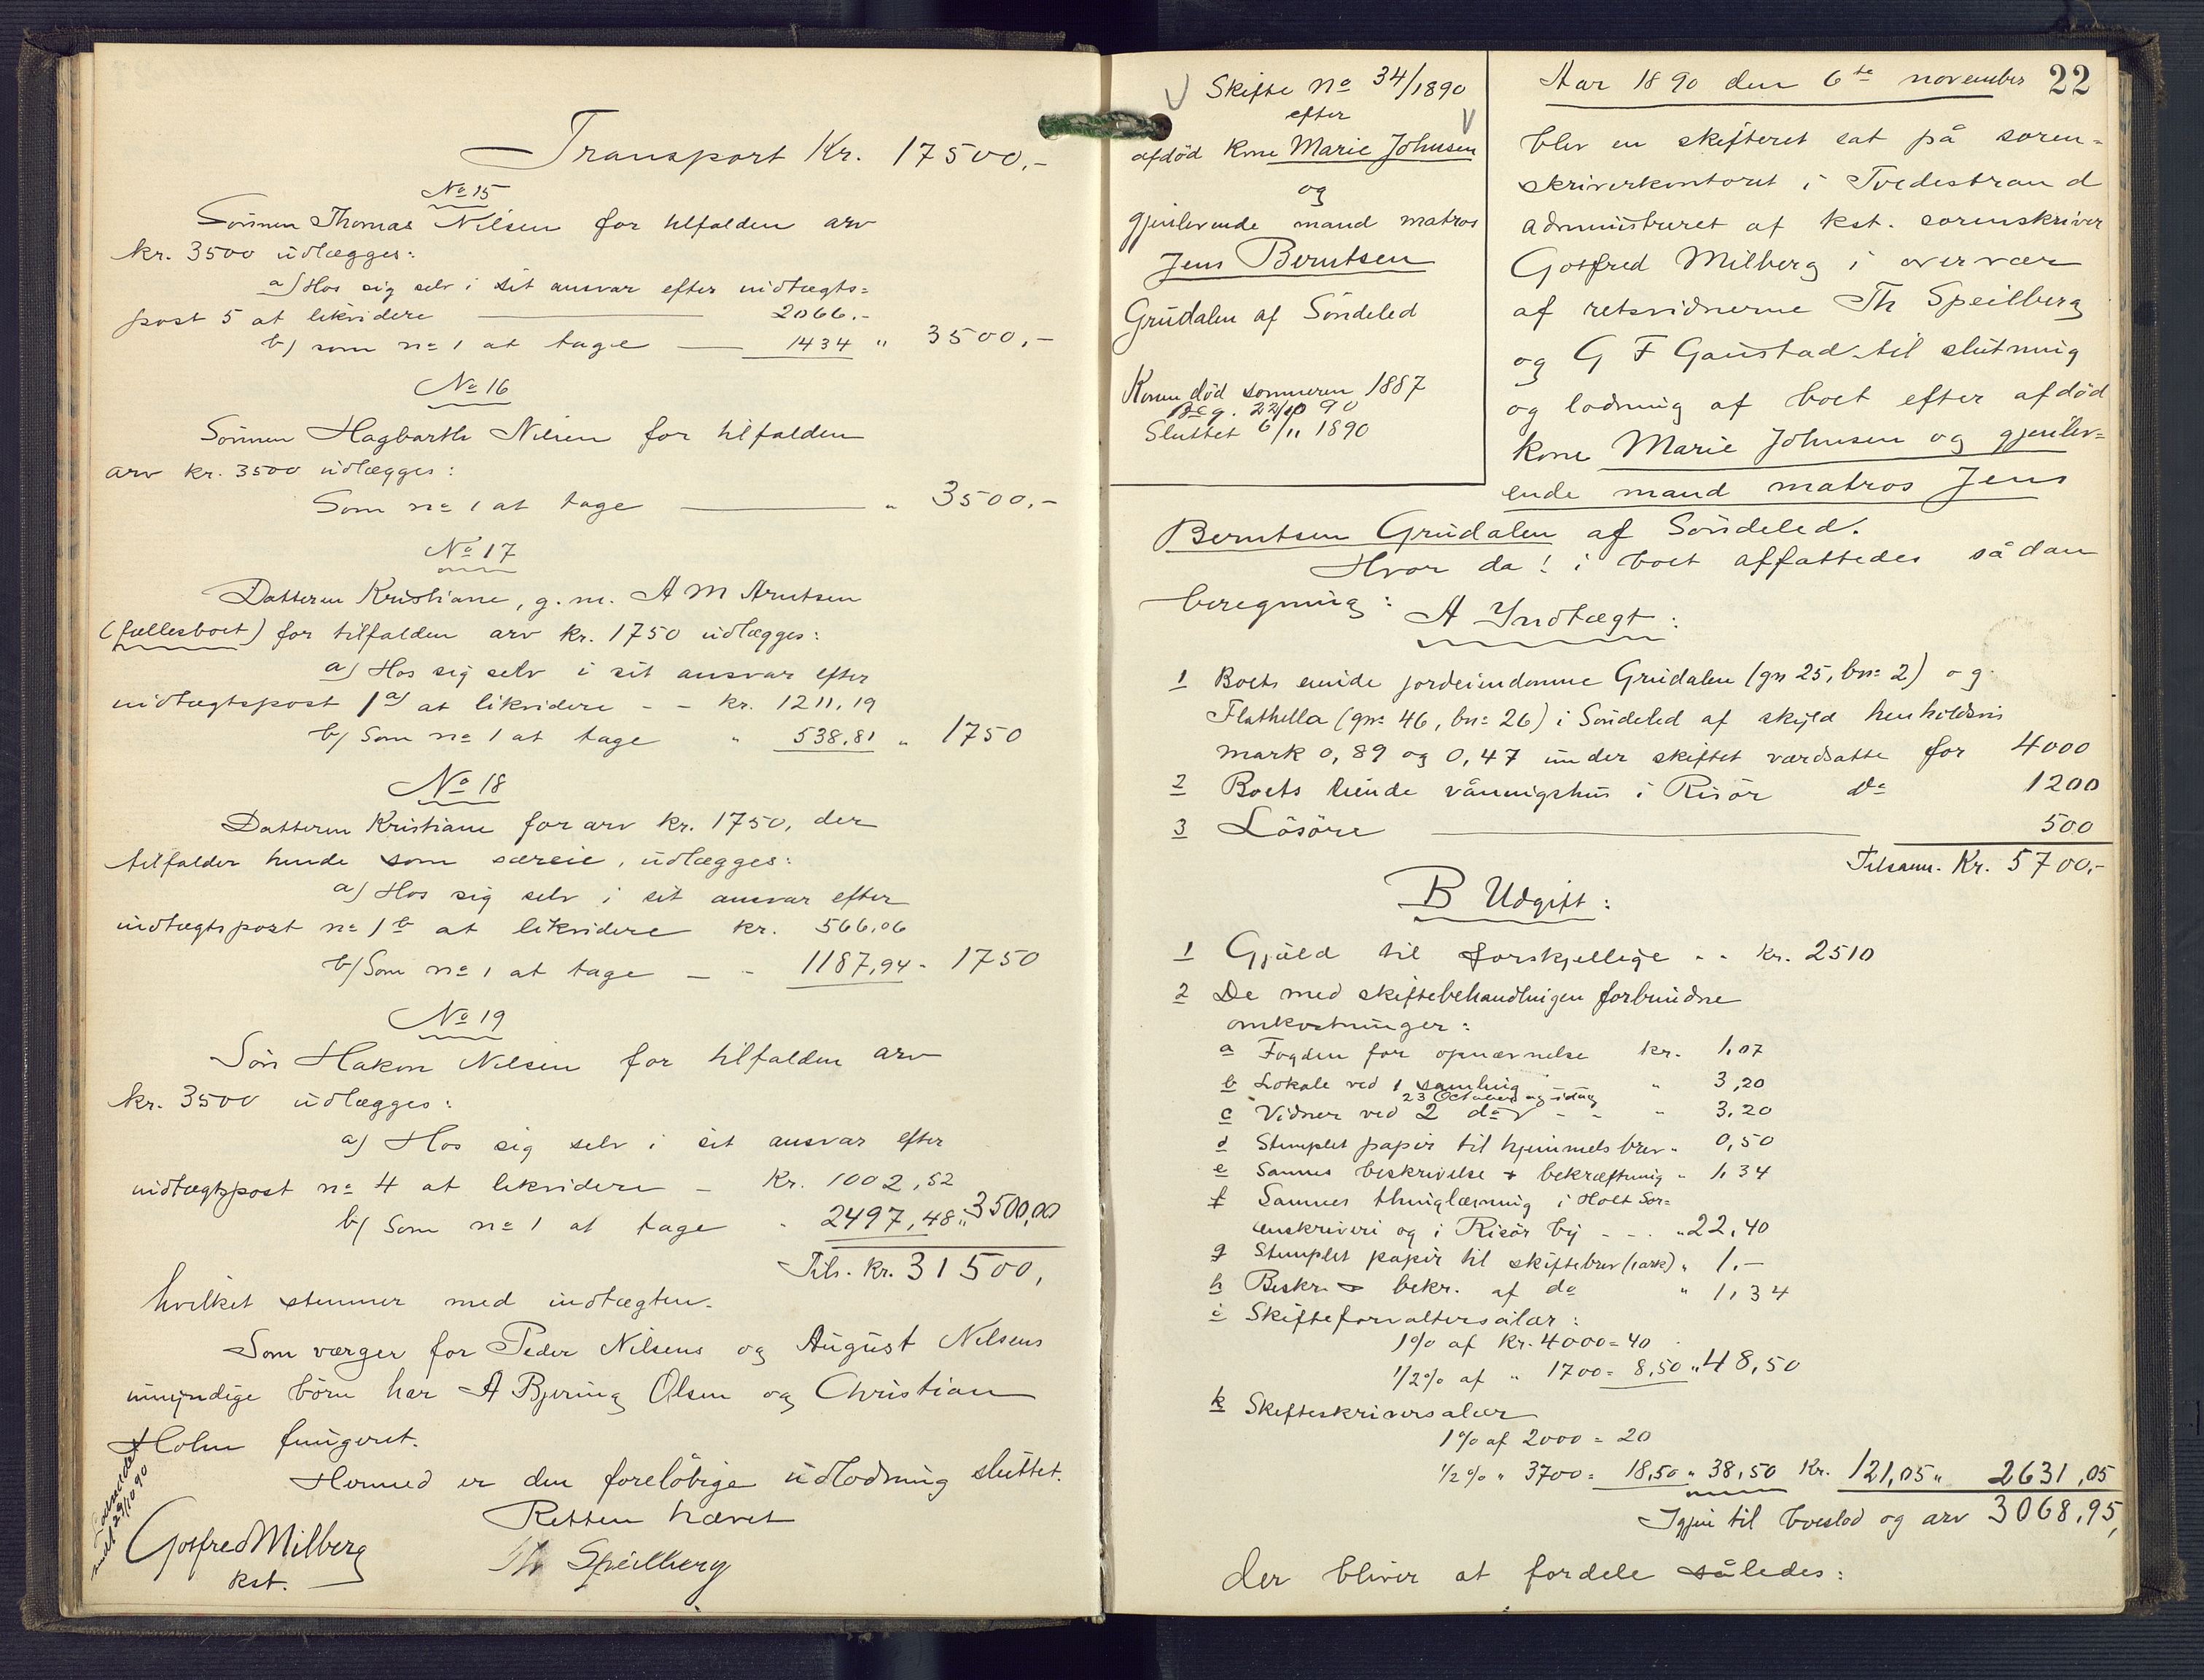 Transport Kr. 17500,-
No 15
Sönnen Thomas Nilsen for tilfalden arv
kr. 3500 udlægges:
a) Hos sig selv i sit ansvar efter indtægts=
post 5 at likvidere 2066.-
b) som no 1 at tage 1434 " 3500,-
No 16
Sönnen Hagbarth Nilsen for tilfalden
arv kr. 3500 udlægges:
Som no 1 at tage " 3500.-
No 17
Datteren Kristiane, g. m. A M Arntsen
(fællesboet) for tilfalden arv kr. 1750 udlægges:
a) Hos sig selv i sit ansvar efter
indtægtspost 1a) at likvidere - - kr. 1211,19
b) Som no 1 at tage " 538,81 " 1750
No 18
Datteren Kristiane for arv kr. 1750, der
tilfalder hende som særeie, udlægges:
a) Hos sig selv i sit ansvar efter
indtægtspost no 1b at likvidere kr. 566,06
b) Som no 1 at tage - - 1187,94 - 1750
No 19
Sön Hakon Nilsen for tilfalden arv
kr. 3500 udlægges:
a) Hos sig selv i sit ansvar efter
indtægtspost no 4 at likvidere - Kr. 1002,52
b) Som no 1 at tage " 2497,48 " 3500,00
Tils. Kr. 31500,
hvilket stemmer med indtægten.
Som værger for Peder Nilsens og August Nilsens
umyndige börn har A Bjering Olsen og Christian
Holm fungeret.
Hermed er den foreløbige udlodning sluttet.
Retten hævet
Gotfred Milberg
kst.
Th Speilberg
29/10 90
Skifte No 34/1890
efter
afdöd kone Marie Johnsen
og
gjenlevende mand matros
Jens Berntsen
Grüdalen af Söndeled
Konen död sommeren 1887
Beg. 22/10 90
Sluttet 6/11 1890
22
Aar 1890 den 6te november
blev en skifteret sat på soren=
skriverkontoret i Tvedestrand
administreret af kst. sorenskriver
Gotfred Milberg i overvær
af retsvidnerne Th Speilberg
og G F Gaustad til slutning
og lodning af boet efter afdöd
kone Marie Johnsen og gjenlev=
ende mand matros Jens
Berntsen Grüdalen af Söndeled.
Hvor da! i boet affattedes sådan
beregning:
A Indtægt:
1 Boets eiende jordeiendomme Grüdalen (gn 25, bn: 2) og
Flathella (gn: 46, bn: 26) i Söndeled af skyld henholdsvis
mark 0,89 og 0,47 under skiftet værdsatte for 4000
2 Boets eiende våningshus i Risör do 1200
3 Lösöre 500
Tilsam. Kr. 5700,-
B Udgift:
1 Gjæld til forskjellige - - kr. 2510
2 De med skiftebehandlingen forbundne
omkostninger:
a Fogden for opnævnelse kr. 1,07
b Lokale ved 1 samling " 3,20
23 October og idag
c Vidner ved 2 do - - " 3,20
d Stemplet papir til hjemmelsbrev " 0,50
e Sammes beskrivelse + bekræftning " 1,34
f Sammes thinglæsning i Holt Sor=
enskriveri og i Risör by - - . " 22,40
g Stemplet papir til skiftebrev (1 ark) " 1.-
h Beskr. + bekr. af do " 1,34
i Skifteforvaltersalær:
1% af kr. 4000 = 40
1/2% af " 1700 = 8,50 " 48,50
k Skifteskriversalær
1% af 2000 = 20
1/2% " 3700 = 18,50 " 38,50 Kr. 121,05 " 2631,05
Igjen til boeslod og arv 3068,95,
der bliver at fordele således: